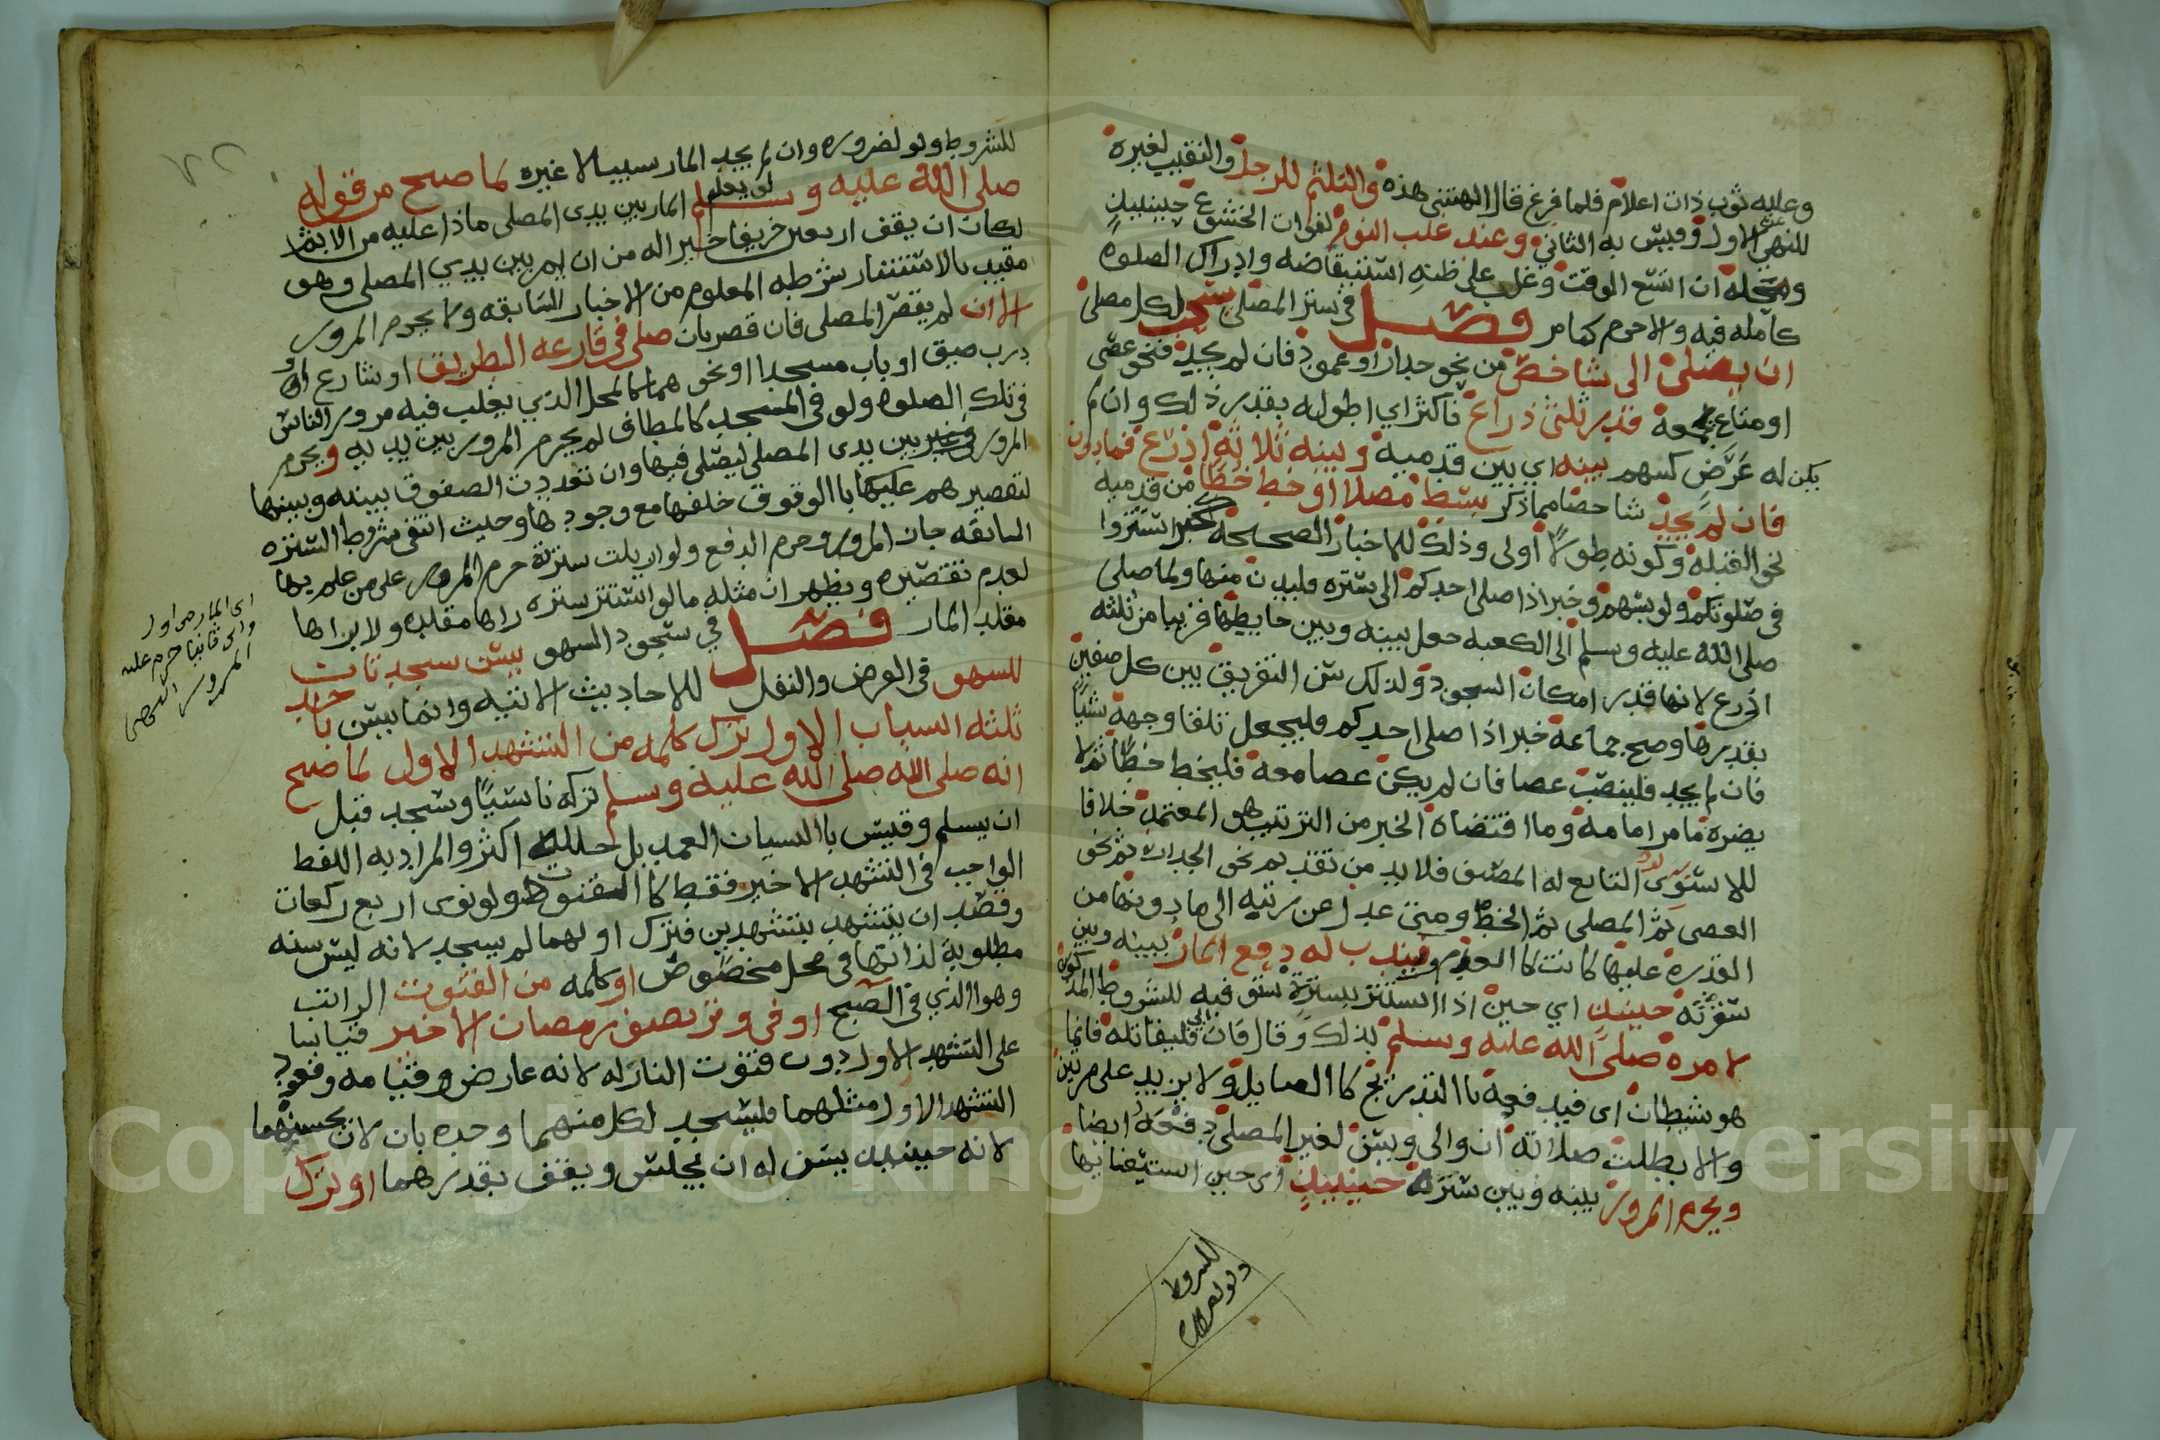 وعليه ثوب ذات اعلام فلما فرغ قال الهتني هذه والتلثم للرجل والنقيب لغيره
للنهي عن الاول وقيس به الثاني وعند غلب النوم لفوات الخشوع حينيذ
ومحله ان اتسع الوقت وغلب على ظنه استيقاضه وادراك الصلوه
كامله فيه والاحرم كما مر فصل في ستر المصلي يستحب لكل مصلي
ان يصلي الى شاخص من نحو جدار او عمود فان لم يجد فنحو عصى
او متاع يجمعه قدر ثلثي ذراع فاكثر اي طوله بقدر ذلك وان لم
يكن له عرض كسهم بينه اي بين قدميه وبينه ثلاثة اذرع فما دون
فان لم يجد شاخصا مما ذكر بسط مصلا او خط خطا من قدميه
نحو القبلة وكونه طولا اولى وذلك للاخبار الصحيحة كخبر استتروا
في صلوتكم ولو بسهم وخبر اذا صلى احدكم الى ستره فليدن منها ولما صلى
صلى الله عليه وسلم الى الكعبه جعل بينه وبين حايطها قريبا من ثلثه
اذرع لانها قدر امكان السجود ولذلك سن التفريق بين كل صفين
بقدرها وصح جماعة خبر اذا صلى احدكم فليجعل تلقا وجهه شيا
فان لم يجد فلينصب عصا فان لم يكن عصا معه فليخط خطا ثم لا
يضره ما مر امامه وما اقتضاه الخبر من الترتيب هو المعتمد خلافا
للاسنوي التابع له المصنف فلا بد من تقديم نحو الجدار ثم نحو
العصى ثم المصلى ثم الخط ومتى عدل عن رتبه الى ما دونها من
القدرة عليها كانت كالعدم ويندب له دفع المار بينه وبين
سترته حينيذ اي حين اذا استتر بسترة ستوفيه للشروط المذكورة
لامره صلى الله عليه وسلم بذلك وقال فان ابى فليقاتله فانما
هو شيطان اى فيدفعه باالتدريج كاالصايل ولا يزيد على مرتين
والا بطلت صلاته ان والى ويسن لغير المصلي دفعه ايضا
ويحرم المرور بينه وبين سترته حينيذ اى حين استيفائها
للشروط
ولو لضروره
للشروط ولو لضروره وان لم يجد المار سبيلا غيره لما صح من قوله
صلى الله عليه وسلم لو يعلم المار بين يدى المصلى ماذا عليه من الاثم
لكان ان يقف اربعين خريفا خيرا له من ان يمر بين يدي المصلى وهو
مقيد بالاستتار بشرطه المعلوم من الاخبار السابقه ولا يحرم المرور
الا ان لم يقصر المصلى فان قصر بان صلى في قارعه الطريق او شارع او
درب ضيق او باب مسجد او نحو هما كالمحل الذي يغلب فيه مرور الناس
في تلك الصلوه ولو في المسجد كالمطاف لم يحرم المرور بين يديه ويحرم
المرور بين يدى المصلى ليصلى فيها وان تعددت الصفوف بينه وبينها
لتقصيرهم عليها باالوقوف خلفها مع وجودها وحيث انتفى شروط الستره
السابقه جاز المرور وحرم الدفع ولو ازيلت سترته حرم المرور على من علم بها
لعدم تقصيره ويظهر ان مثله ما لو استتر بستره راها مقلده ولا يراها
مقلد المار فصل في سجود السهو يسن سجدتان
للسهو في الفرض والنفل للاحاديث الاتيه وانما يسن باحد
ثلثه اسباب الاول ترك كلمه من التشهد الاول لما صح
انه صلى الله صلى الله عليه وسلم تركه ناسيا وسجد قبل
ان يسلم وقيس باالنسيان العمد بل خلله اكثر والمراد به اللفظ
الواجب في التشهد الاخير فقط كا القنوت ولو نوى اربع ركعات
وقصد ان يتشهد بتشهدين فترك اولهما لم يسجد لانه ليس سنه
مطلوبة لذاتها في محل مخصوص او كلمه من القنوت الراتب
وهو الذي في الصبح او في وتر نصف رمضان الاخير قياسا
على التشهد الاول دون قنوت النازله لانه عارض وقيامه وقعود
التشهد الاول مثلهما فليسجد لكل منهما وحده بان لان يحسنهما
لانه حينيذ يسن له ان يجلس ويقف بقدرهما او ترك
المرور